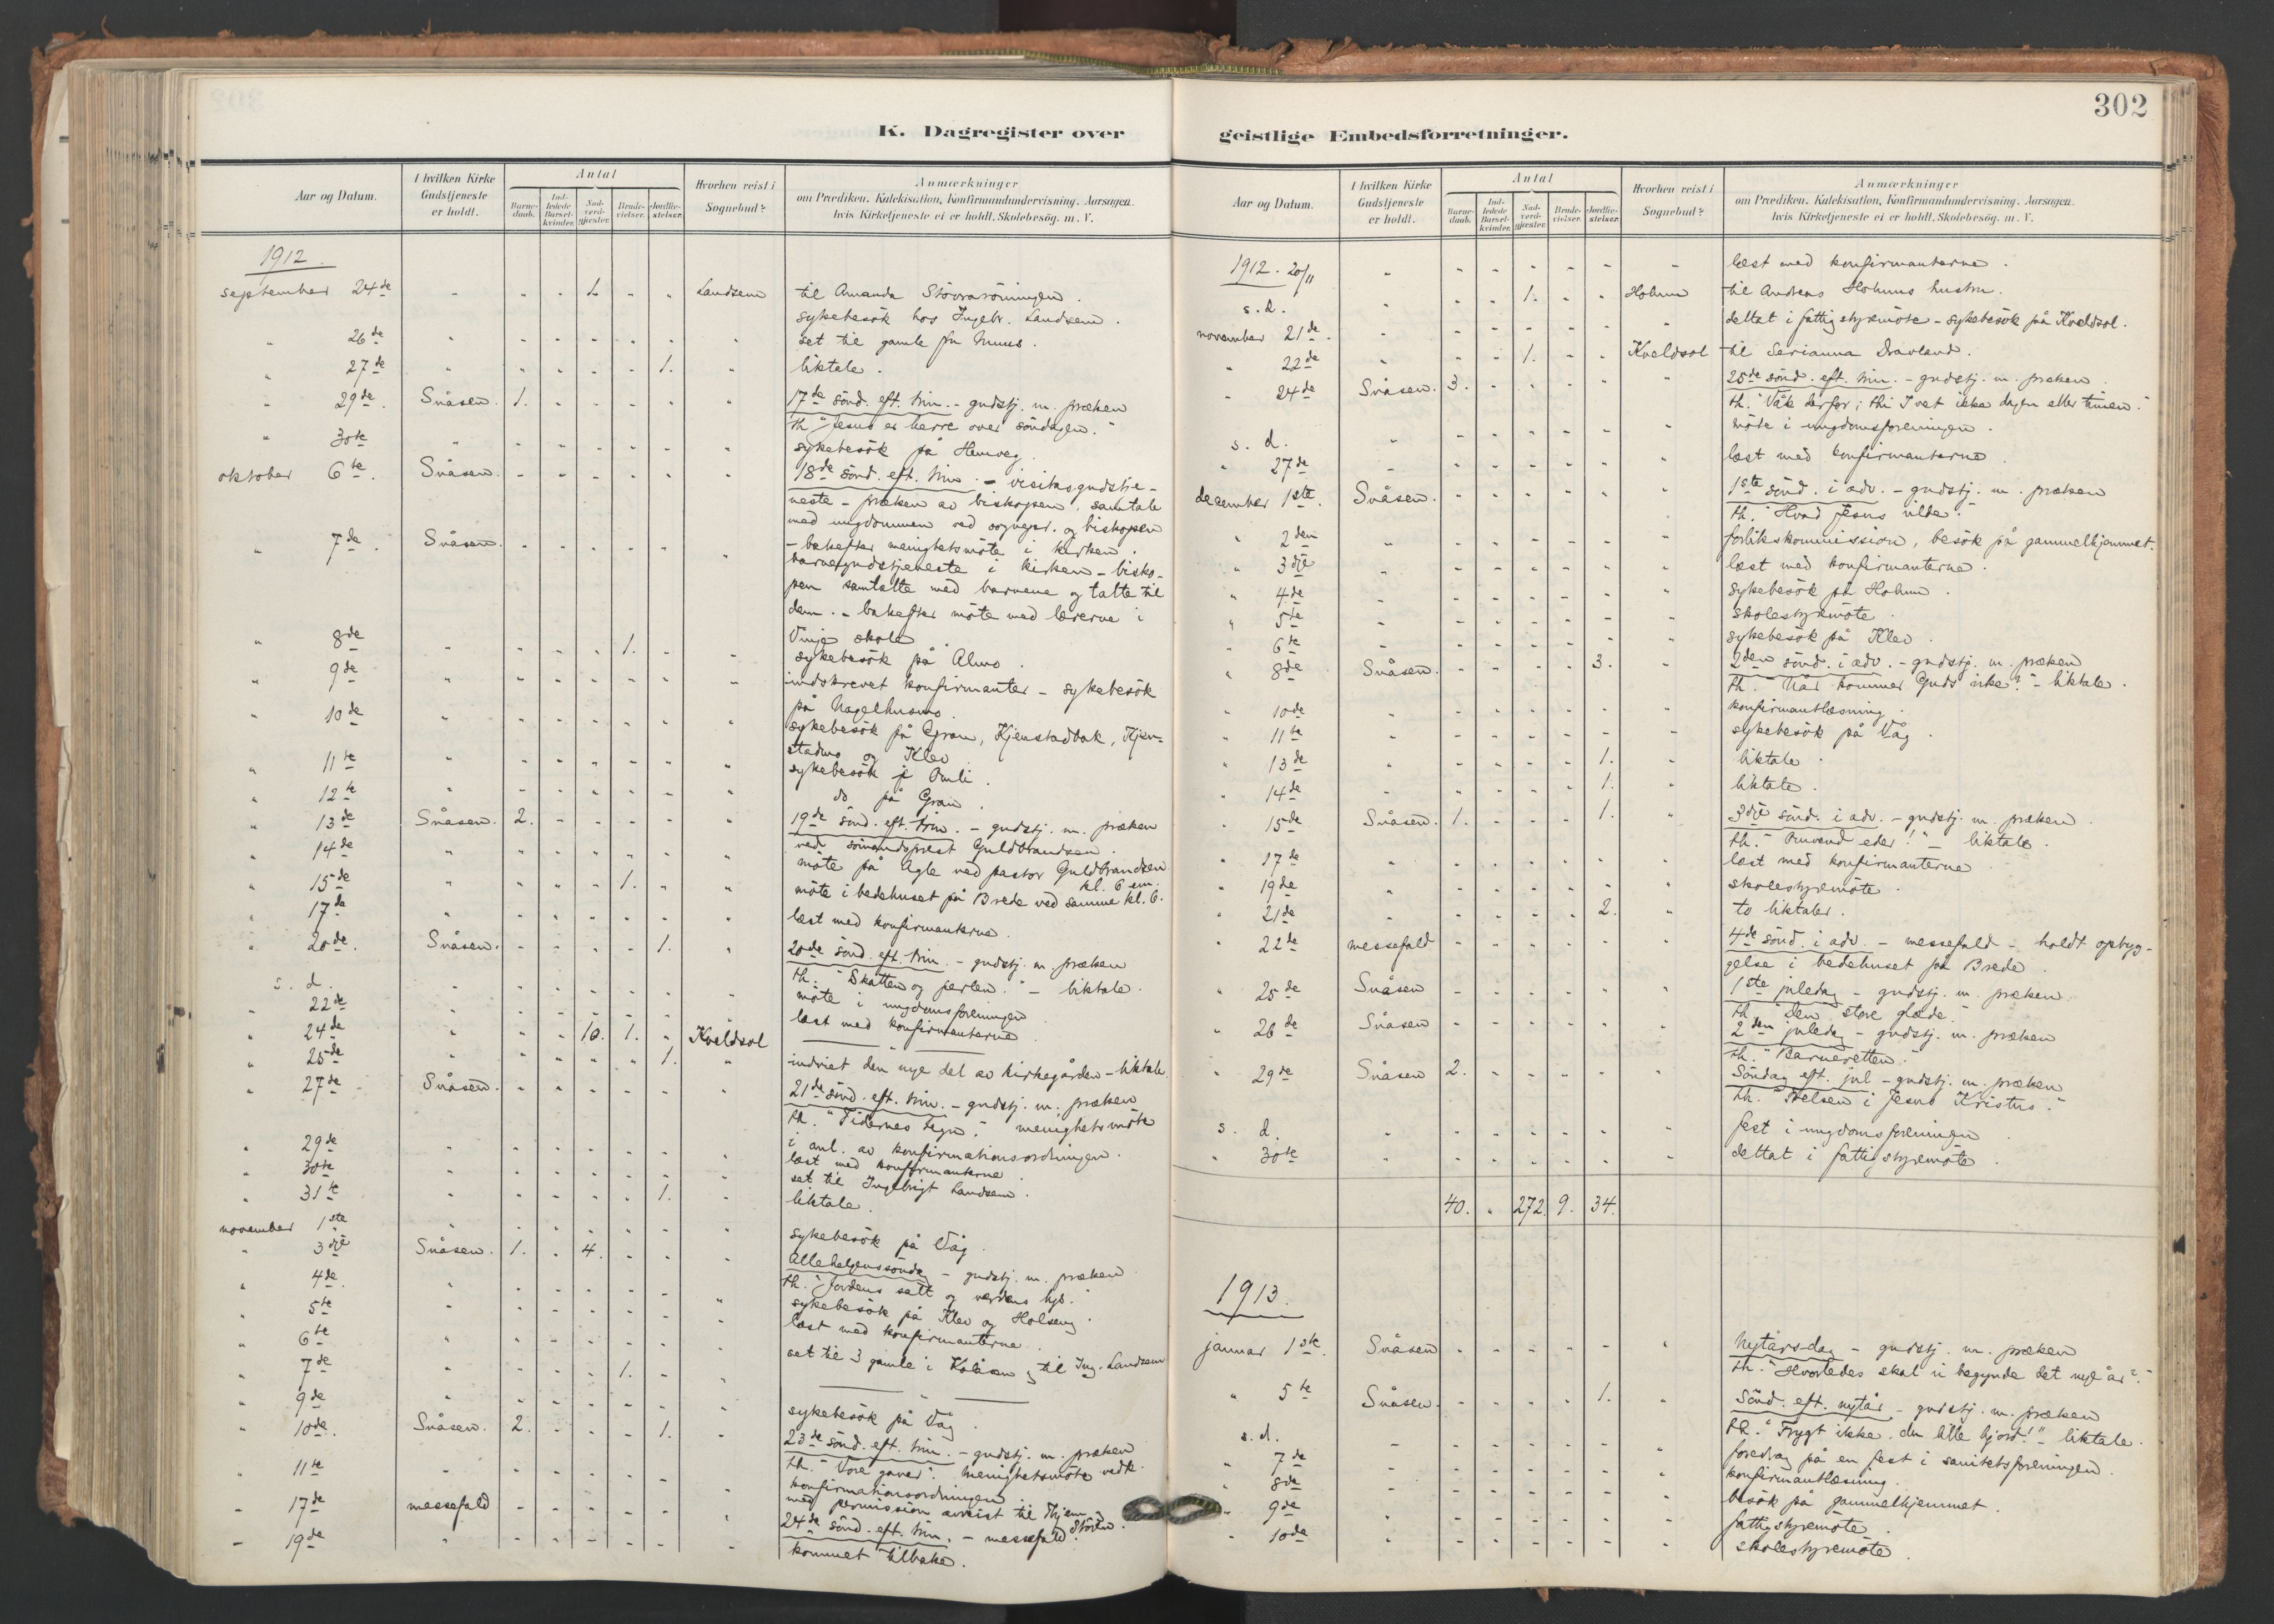 302
K. Dagregister over
geistlige Embedsforretninger.
Aar og Datum.
I hvilken Kirke Gudstjeneste er holdt.
Antal
Barne-daab.
Ind-ledede Barsel-kvinder.
Nad-verd-gjæster.
Brude-vielser.
Jordfæ-stelser.
Hvorhen reist i Sognebud?
Anmærkninger
om Prædiken. Katekisation, Konfirmandundervisning. Aarsagen hvis Kirketjeneste ei er holdt. Skolebesög. m. V.
1912.
september 24de Landsem til Amanda
sykebesök hos Ingebr. Landsem.
" 26de set til gamle fru Muus.
" 27de 1. liktale.
" 29de Snåsen. 1. 17de sönd. eft. trin. - gudstj. m. præken
th. "Jesus er herre over söndagen."
" 30te sykebesök på
oktober 6te. Snåsen. 18de sönd. eft. trin. - visitasgudstje-
neste - præken av biskopen, samtale
med ungdommen ved sognepr. og biskopen
- bakefter menighetsmöte i kirken.
" 7de. Snåsen. barnegudstjeneste i kirken - bisko-
pen samtalte med barnene og talte til
dem. - bakefter möte med lærerne i
Vinje skole
" 8de 1. sykebesök på Almo.
" 9de indskrevet konfirmanter - sykebesök
på
" 10de sykebesök på Gran, Kjenstadbak, Kjen-
stadmo og Klev.
" 11te sykebesök i
" 12te do på Gran.
" 13de Snåsen. 2. 19de sönd. eft. trin. - gudstj. m. præken
ved sömandsprest Guldbrandsen.
" 14de möte på Agle ved pastor Guldbrandsen
kl. 6 em.
" 15de 1. möte i bedehuset på Brede ved samme kl. 6.
" 17de læst med konfirmanterne.
" 20de. Snåsen. 1. 20de sönd. eft. trin. - gudstj. m. præken
th. "Skatten og perlen." - liktale.
s. d. möte i ungdomsforeningen
" 22de læst med konfirmanterne
" 24de 10. 1. Kveldsol
" 25de 1. indviet den nye del av kirkegården - liktale.
" 27de Snåsen. 21de sönd. eft. trin. - gudstj. m. præken
th. "Tidernes tegn." menighetsmöte
i anl. av konfirmationsordningen.
" 29de læst med konfirmanterne.
" 30te set til Ingebrigt Landsem.
" 31te 1. liktale.
november 1ste sykebesök på Våg.
" 3dje Snåsen. 1. 4. Allehelgenssöndag - gudstj. m. præken
th. "Jordens salt og verdens lys."
" 4de. sykebesök på Klev og Holseng.
" 5te læst med konfirmanterne.
" 6te set til 3 gamle i og til Ing. Landsem
" 7de 1.
" 9de sykebesök på Våg.
" 10de. Snåsen. 2. 1. 23de sönd. eft. trin. - gudstj. m. præken
th. "Vore gaver". Menighetsmöte vedk.
konfirmationsordningen.
" 11te med permission avreist til Hjem og Stören.
" 17de messefald 24de sönd. eft. trin. - messefald.
" 19de kommet tilbake.
Aar og Datum.
I hvilken Kirke Gudstjeneste er holdt.
Antal
Barne-daab.
Ind-ledede Barsel-kvinder.
Nad-verd-gjæster.
Brude-vielser.
Jordfæ-stelser.
Hvorhen reist i Sognebud?
Anmærkninger
om Prædiken. Katekisation, Konfirmandundervisning. Aarsagen hvis Kirketjeneste ei er holdt. Skolebesög. m. V.
1912. 20/11 læst med konfirmanterne.
s. d. 1. Holum til Andreas Holums hustru.
november 21de. deltat i fattigstyremöte - sykebesök på Kveldsol.
" 22de 1. Kveldsol til Serianna
" 24de Snåsen. 3. 25de sönd. eft. trin. - gudstj. m. præken.
th. "Våk derfor; thi I vet ikke dagen eller timen."
s. d. möte i ungdomsforeningen.
" 27de læst med konfirmanterne.
december 1ste. Snåsen. 1ste sönd. i adv. - gudstj. m. præken
th. "Hvad Jesus vilde."
" 2den forlikskommission, besök på gammelhjemmet.
" 3dje læst med konfirmanterne.
" 4de sykebesök på Holum.
" 5te skolestyremöte.
" 6te sykebesök på Klev.
" 8de Snåsen. 3. 2den sönd. i adv. - gudstj. m. præken
th. "Når kommer Guds rike?" - liktale.
" 10de konfirmantlæsning.
" 11te sykebesök på Våg.
" 13de 1. liktale.
" 14de 1. liktale.
" 15de Snåsen. 1. 1. 3dje sönd. i adv. - gudstj. m. præken.
th. "Omvend eder!" - liktale.
" 17de læst med konfirmanterne
" 19de skolestyremöte.
" 21de 2. to liktaler.
" 22de messefald 4de sönd. i adv. - messefald - holdt opbyg-
gelse i bedehuset på Brede.
" 25de Snåsen 1ste juledag - gudstj. m. præken.
th. "Den store glæde."
" 26de Snåsen 2den juledag - gudstj. m. præken
th. "Barneretten."
" 29de Snåsen 2. Söndag eft. jul - gudstj. m. præken
th. "Frelsen i Jesus Kristus."
s. d. fest i ungdomsforeningen.
" 30te deltat i fattigstyremöte.
40. " 272. 9. 34.
1913.
januar 1ste. Snåsen Nytårsdag - gudstj. m. præken
th. "Hvorledes skal vi begynde det nye år?"
" 5te Snåsen. 1. Sönd. eft. nytår - gudstj. m. præken
th. "Frygt ikke, du lille hjord!" - liktale.
s. d. foredrag på en fest i sanitetsforeningen.
" 7de konfirmantlæsning.
" 8de besök på gammelhjemmet.
" 9de fattigstyremöte.
" 10de skolestyremöte.